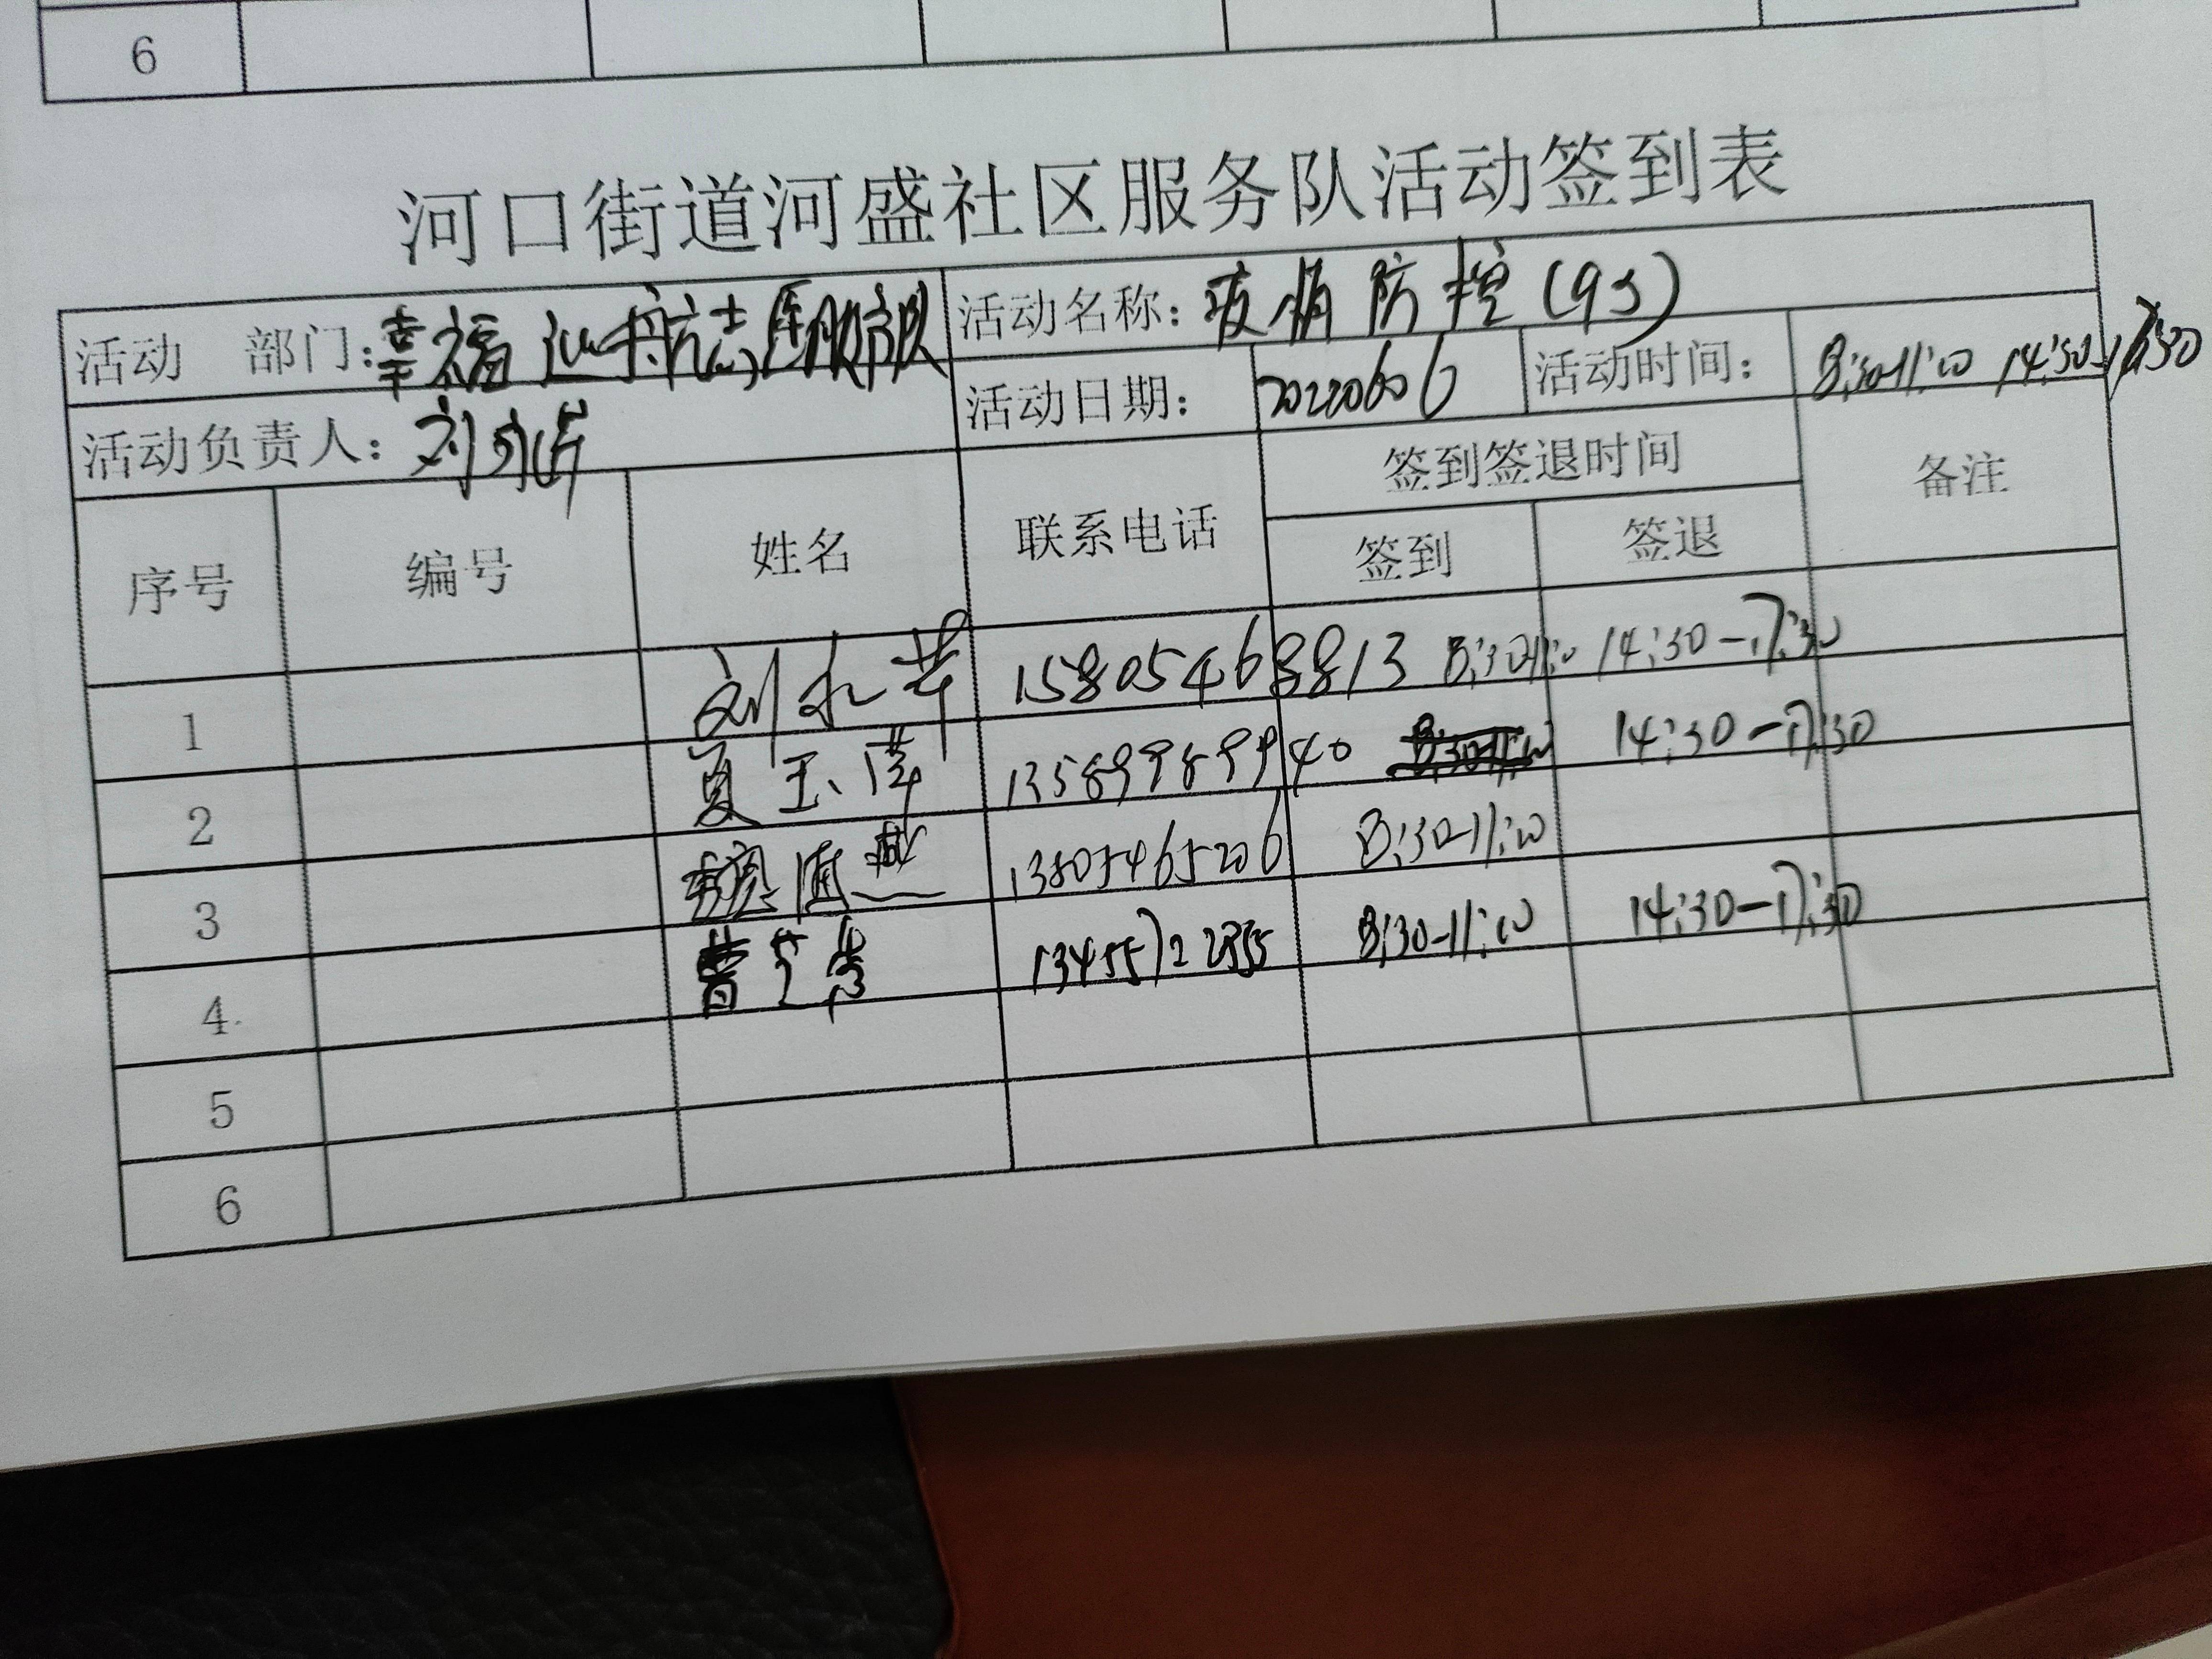 6
河口街道河盛社区服务队活动签到表
活动 部门: 幸福 航志愿服务队 活动名称: 疫情防控(93)
活动负责人: 刘永萍 活动日期: 20220606 活动时间: 8:30-11:00 14:30-17:30
序号 编号 姓名 联系电话 签到签退时间 备注
签到 签退
1 刘永萍 15805468813 8:30-11:00 14:30-17:30
2 夏玉萍 13589989940 14:30-17:30
3 13805465206 8:30-11:00
4 曹 8:30-11:00 14:30-17:30
5
6